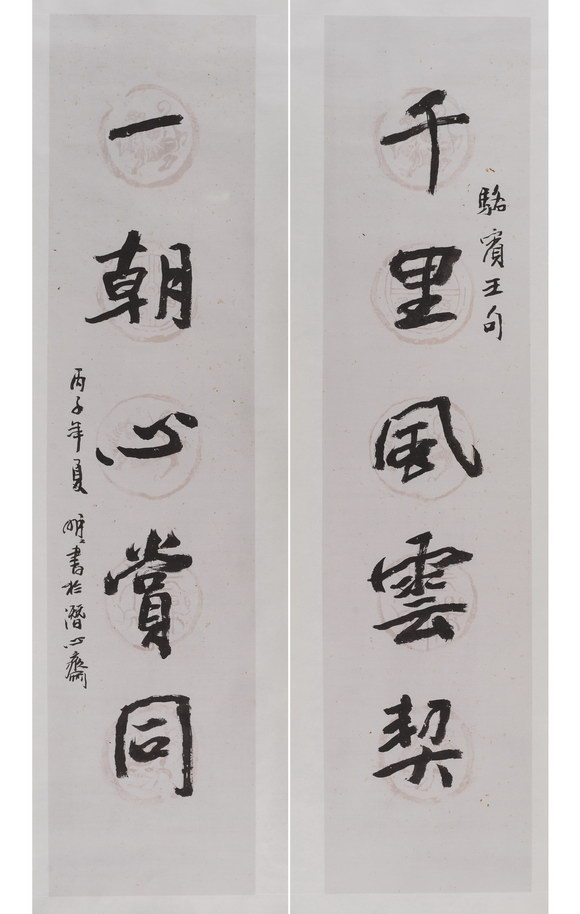 千里風雲契
駱賓王句
一朝心賞同
丙子年夏 明書於潛心齋